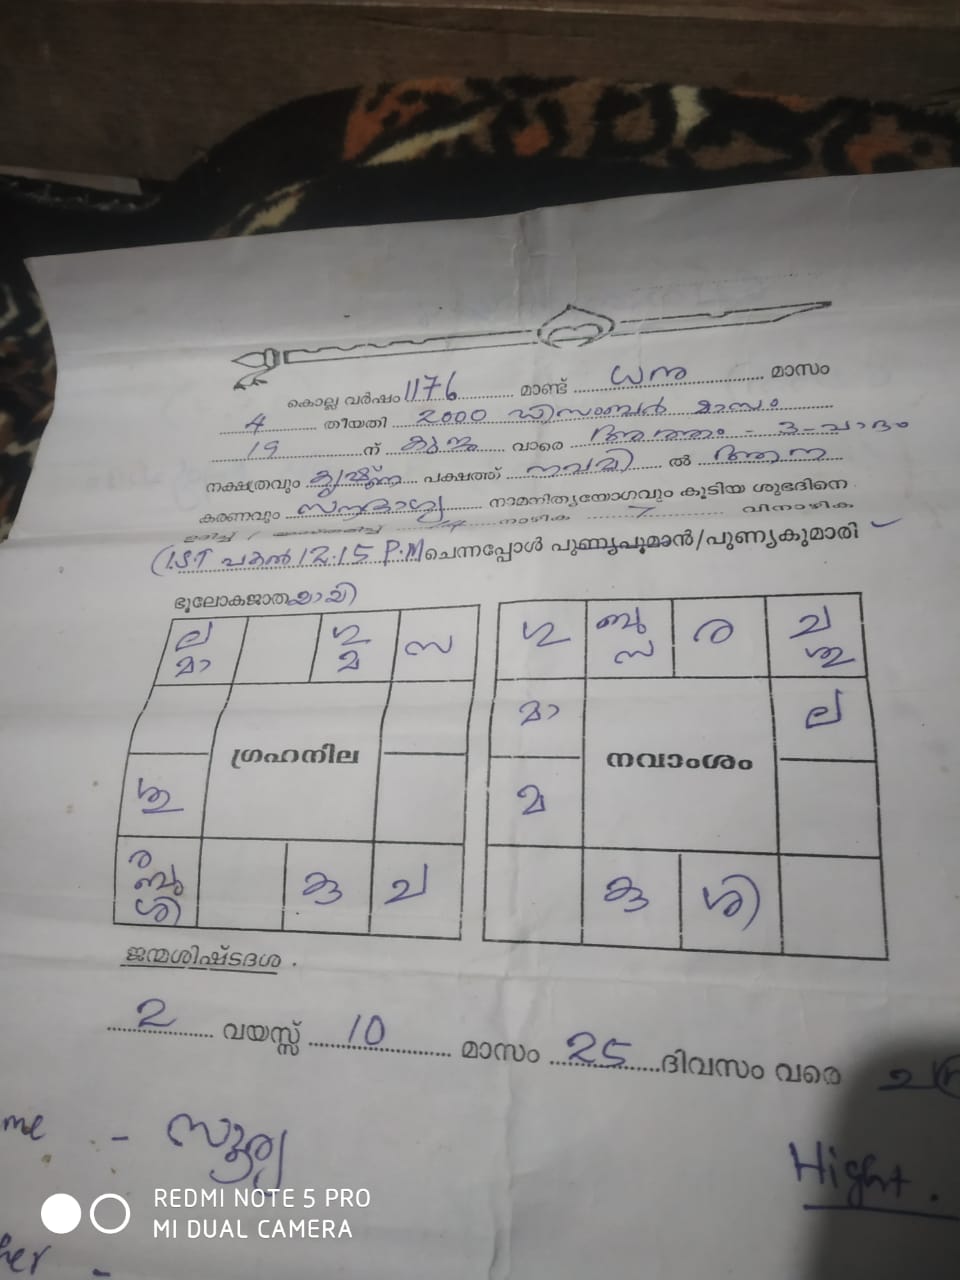 കൊല്ല വർഷം 1176 മാണ്ട് ധനു മാസം
4 തീയതി 2000 ഡിസംബർ മാസം
19 ന് കുജ വാരെ അത്തം - 3-പാദം
നക്ഷത്രവും കൃഷ്ണ പക്ഷത്ത് നവമി ൽ ആന
കരണവും സൗഭാഗ്യ നാമനിത്യയോഗവും കൂടിയ ശുഭദിനെ
ഉദിച്ച് / അസ്തമിച്ച് 14 നാഴിക 7 വിനാഴിക
(I.S.T പകൽ 12.15 P.M ചെന്നപ്പോൾ പുണ്യപുമാൻ/പുണ്യകുമാരി
ഭൂലോകജാതയായി)
ല മാ ഗു മ സ
ഗ്രഹനില
ശു
ര ബു ശി കു ച
ഗു ബു സ ര ച ശു
മാ ല
നവാംശം
മ
കു ശി
ജന്മശിഷ്ടദശ .
2 വയസ്സ് 10 മാസം 25 ദിവസം വരെ
me - സൂര്യ
Hight.
her -
REDMI NOTE 5 PRO
MI DUAL CAMERA